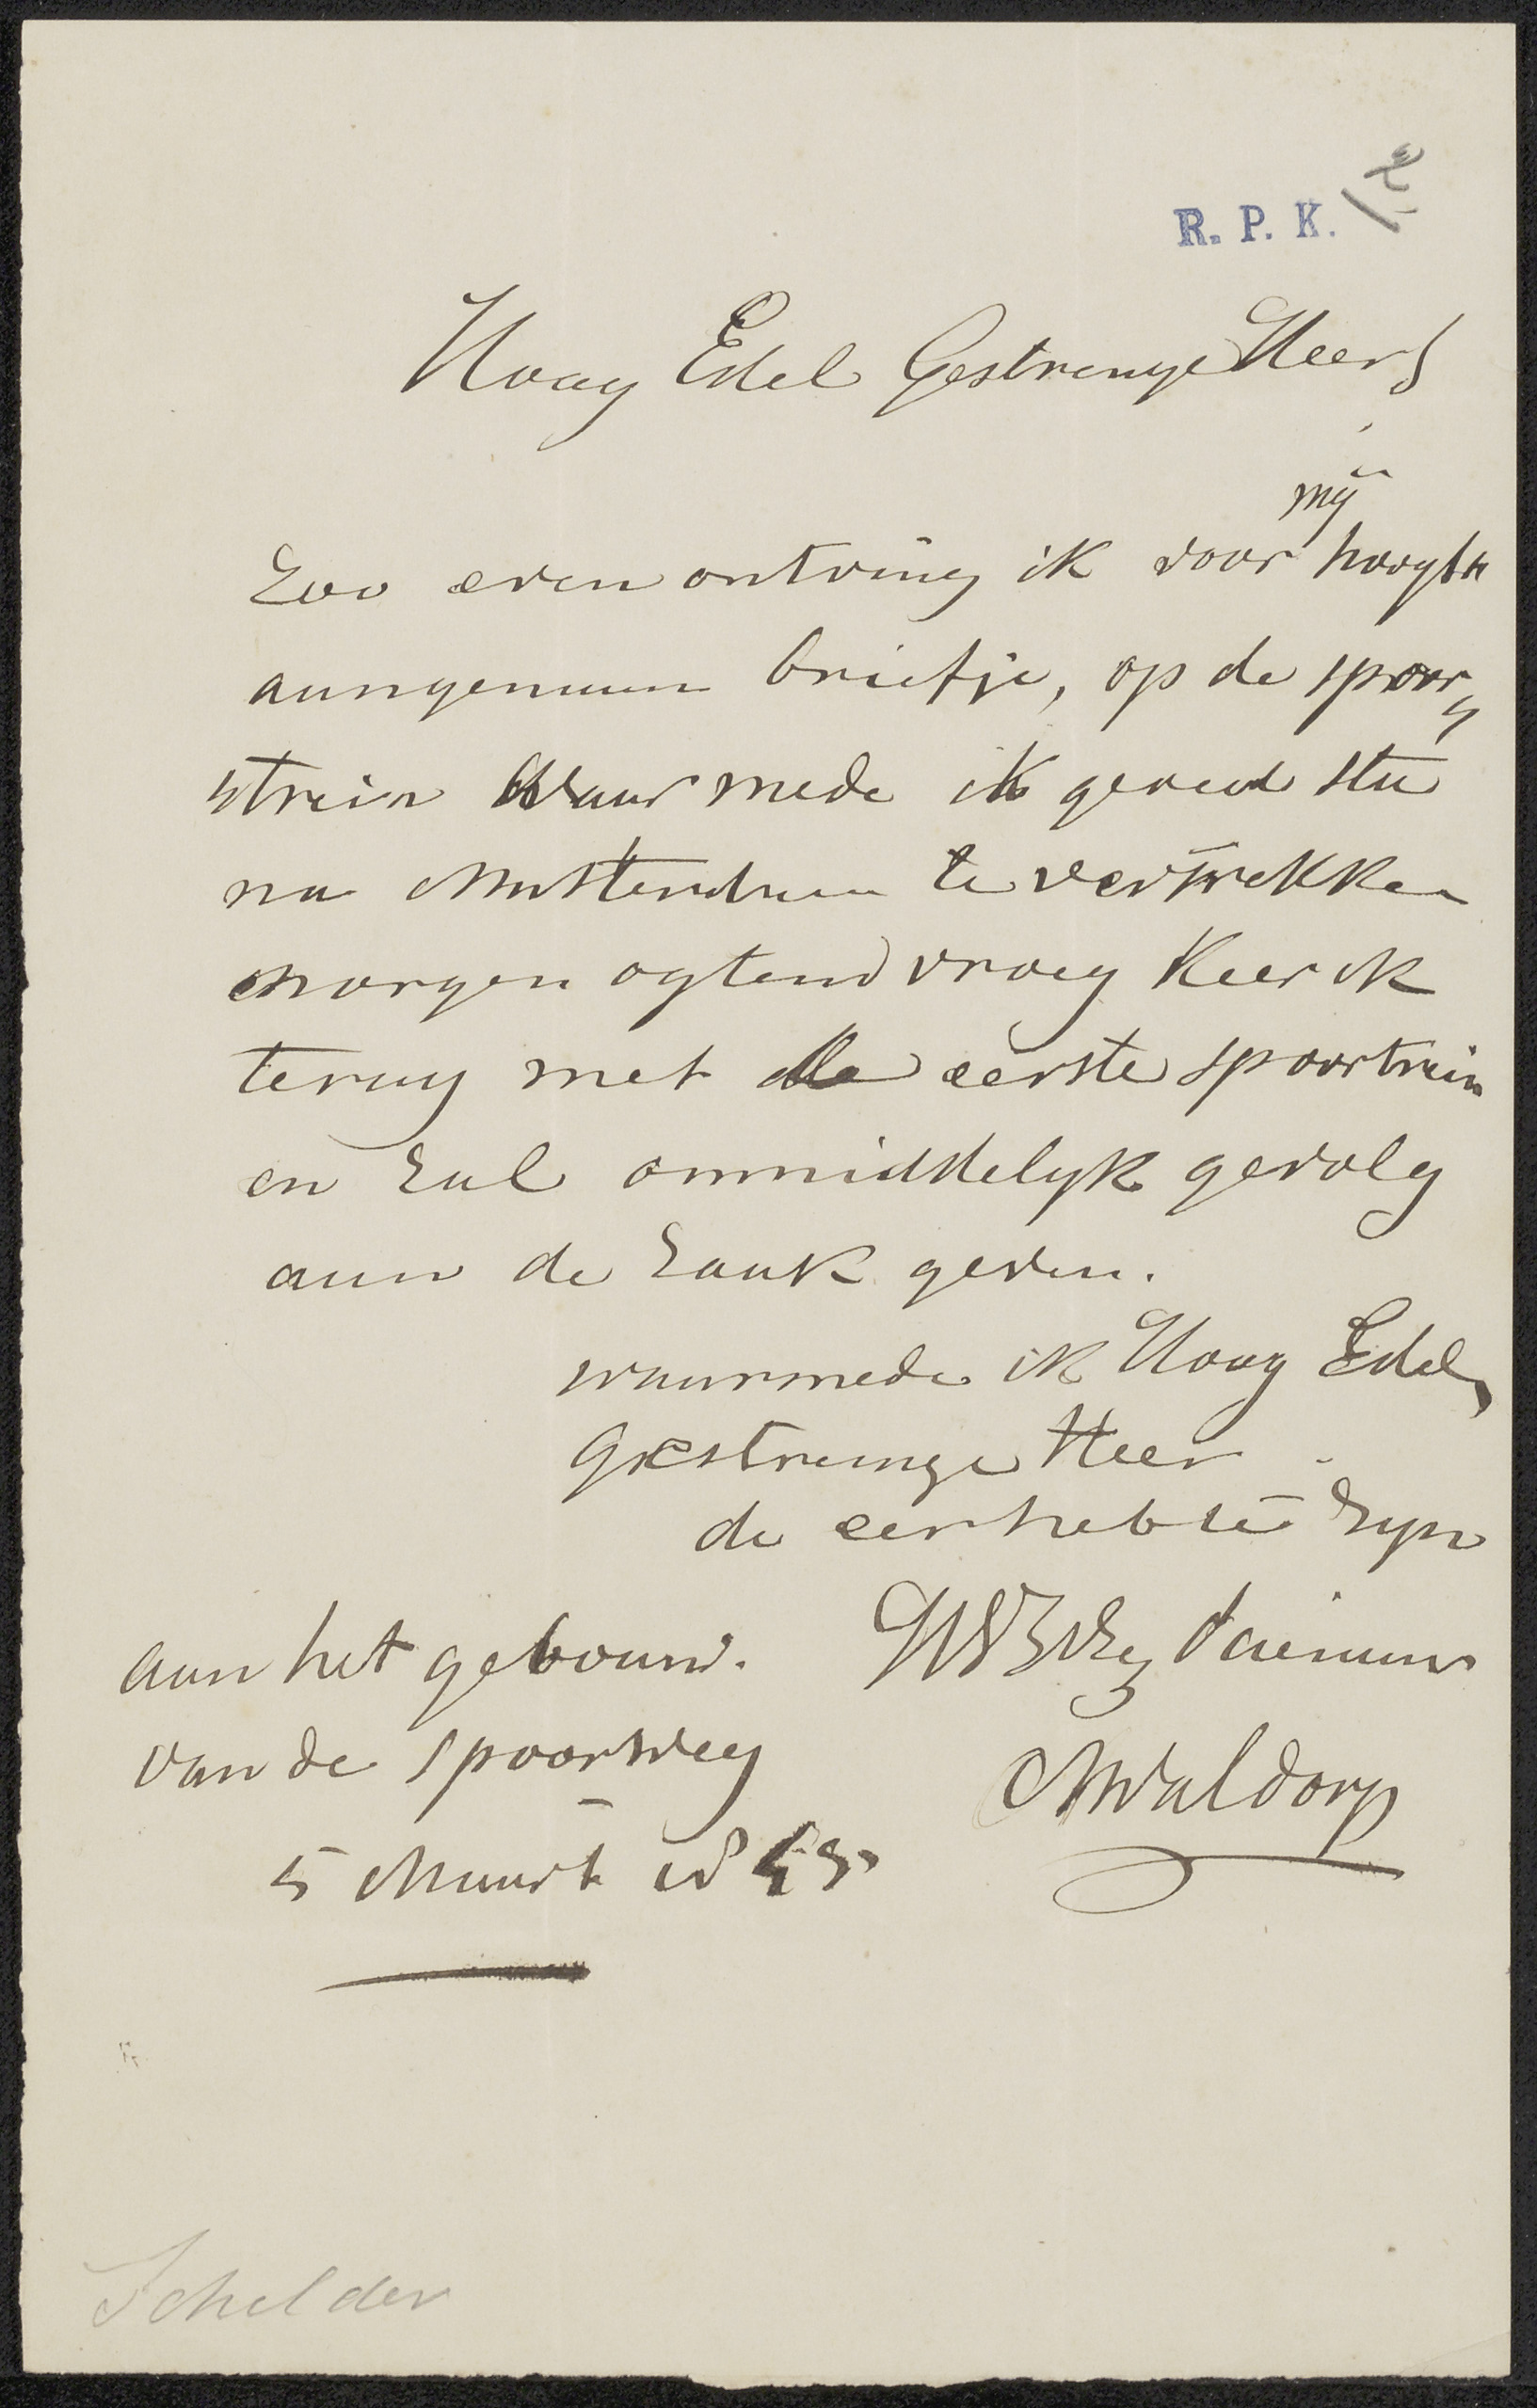 R. P. K.
Hoog Edel Gestrenge Heer
mij
Zoo even ontving ik voor hoogst
aangenaam briefje, op de spoor
trein waar mede ik gereed sta
na Amsterdam te vertrekken
morgen ogtend vroeg keer ik
terug met de eerste spoortrein
en zal onmiddelyk gevolg
aan de zaak geven.
waarmede ik Hoog Edel
Gestrenge Heer
de eer heb te zyn
dienaar
aan het gebouw.
van de spoorweg
AWaldorp
5 Maart
Schilder